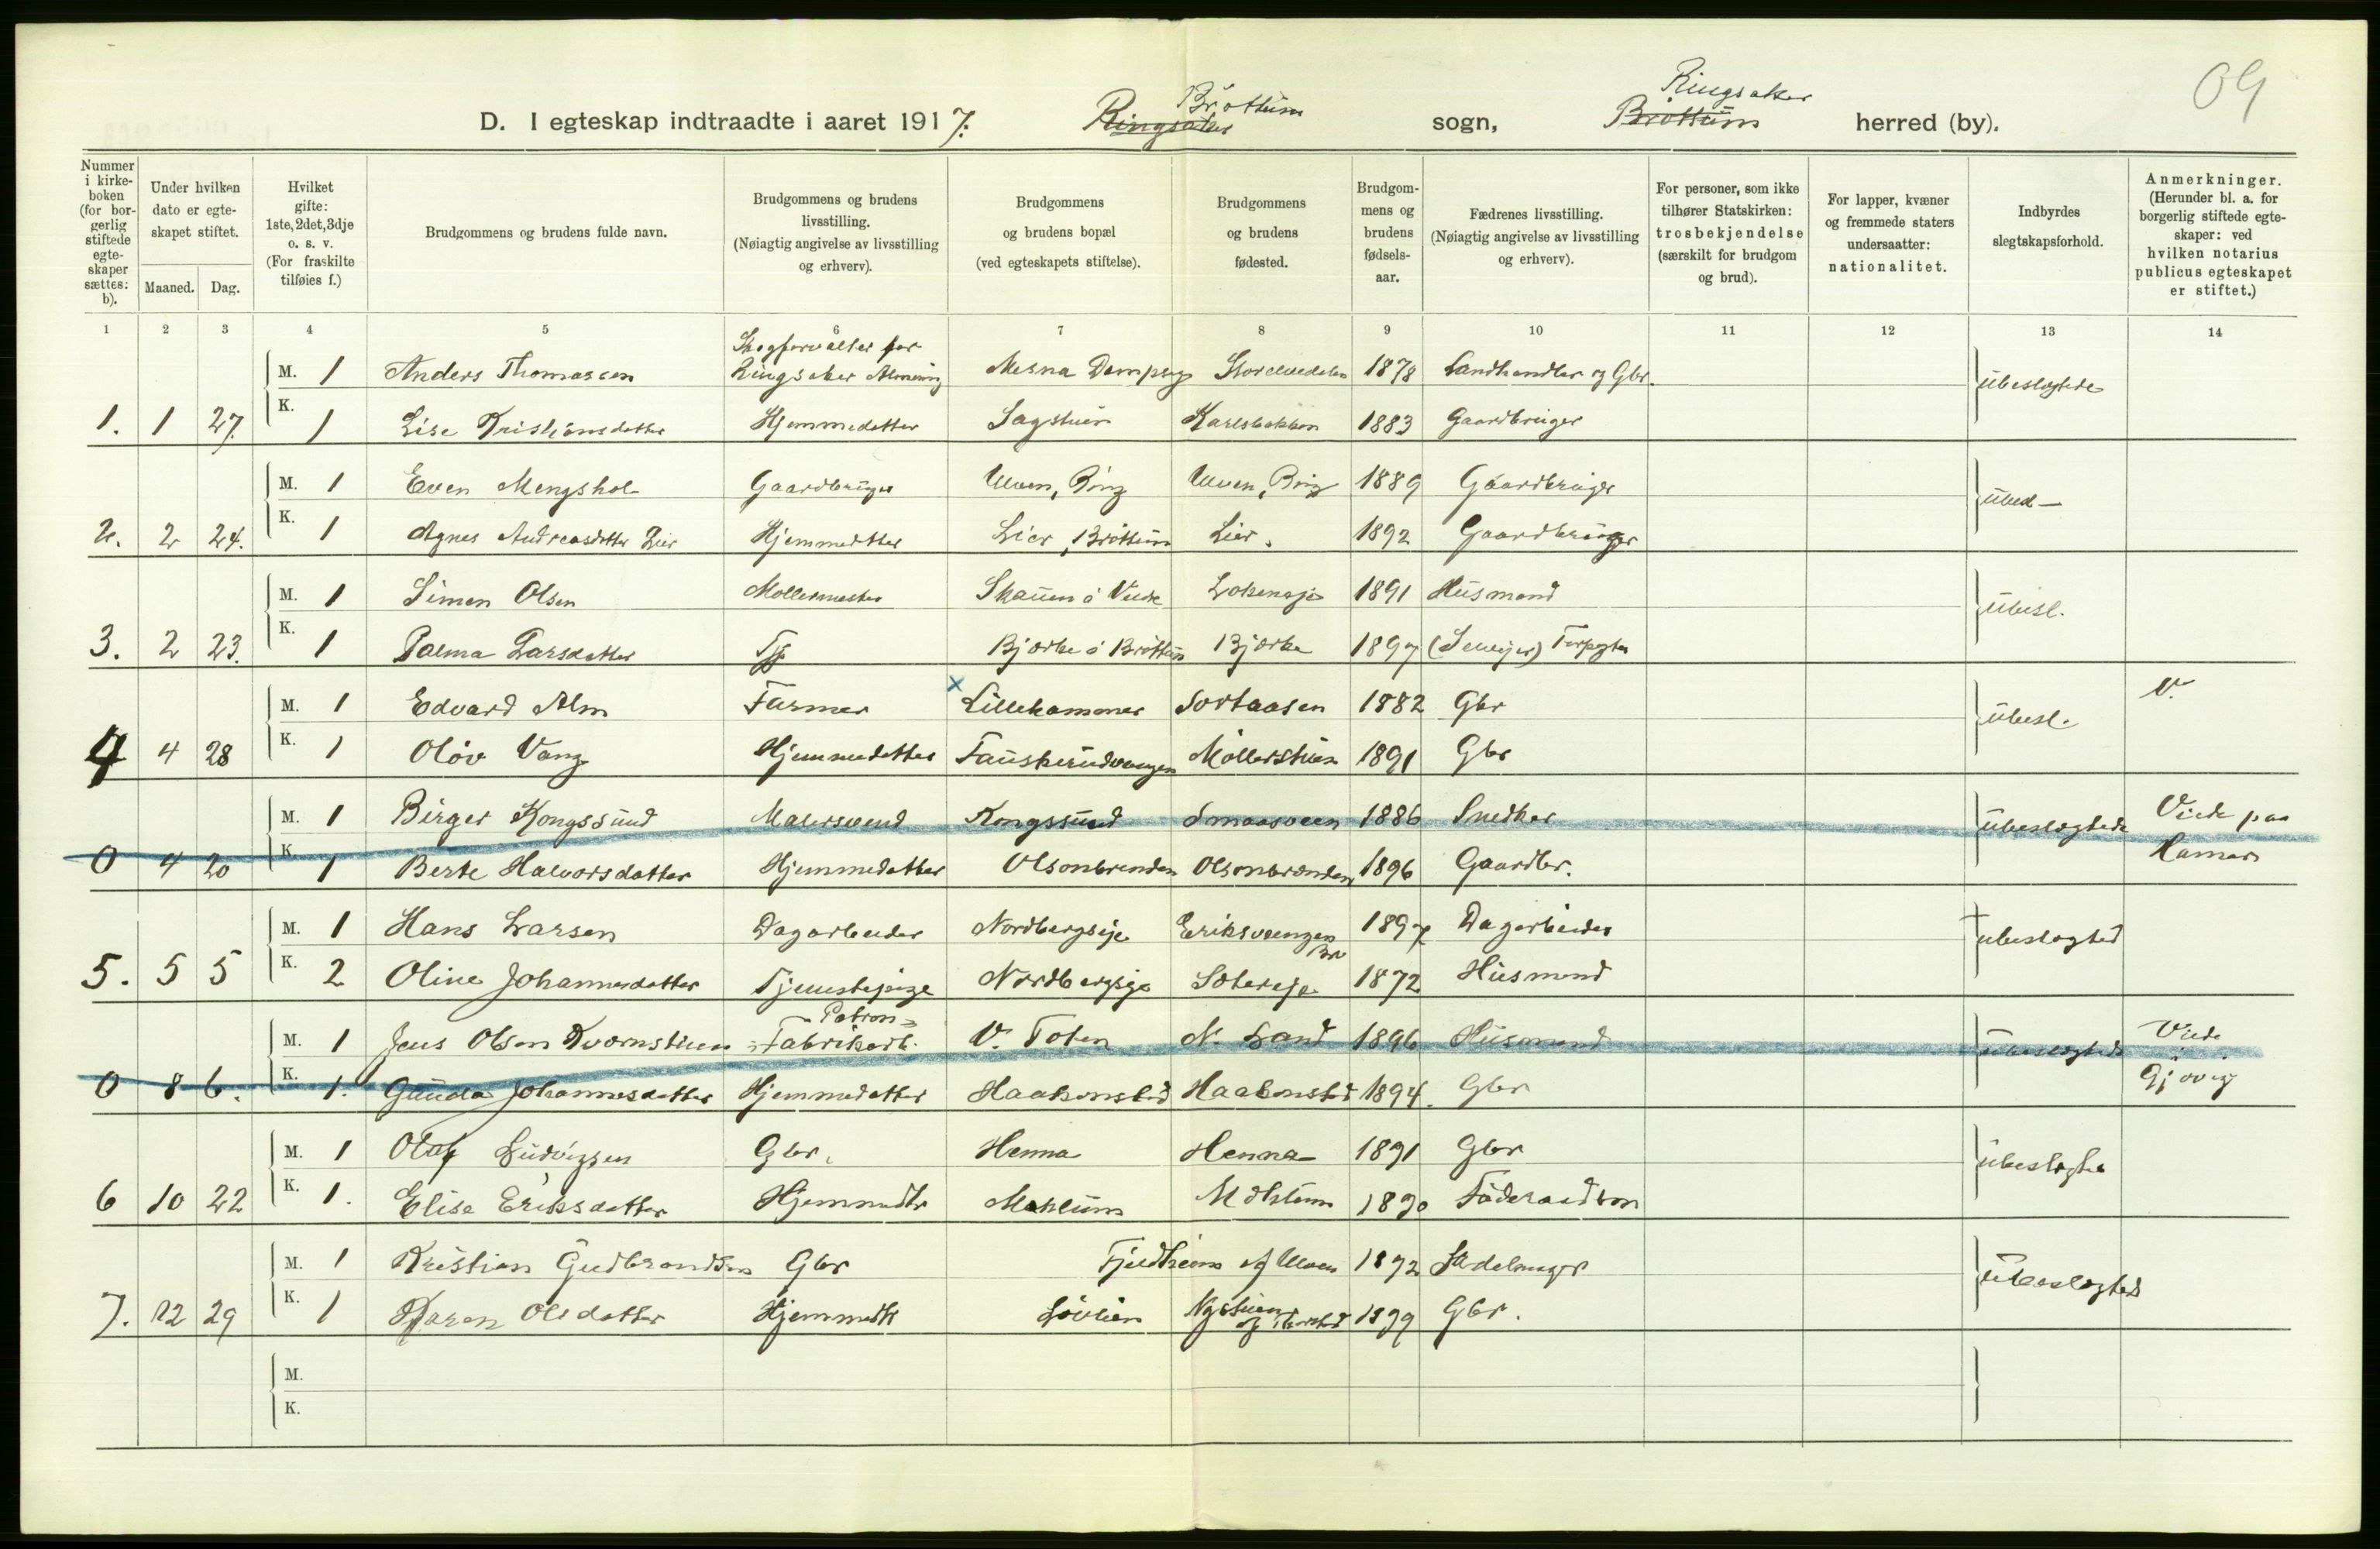 09
D. I egteskap indtraadte i aaret 1917. Ringsaker Brøttum sogn, Brøttum Ringsaker herred (by).
Nummer i kirkeboken (for borgerlig stiftede egteskaper sættes: b).
Under hvilken dato er egteskapet stiftet.
Maaned. Dag.
Hvilket gifte: 1ste, 2det, 3dje o. s. v. (For fraskilte tilføies f.)
Brudgommens og brudens fulde navn.
Brudgommens og brudens livsstilling. (Nøiagtig angivelse av livsstilling og erhverv).
Brudgommens og brudens bopæl (ved egteskapets stiftelse).
Brudgommens og brudens fødested.
Brudgommens og brudens fødselsaar.
Fædrenes livsstilling. (Nøiagtig angivelse av livsstilling og erhverv).
For personer, som ikke tilhører Statskirken: trosbekjendelse (særskilt for brudgom og brud).
For lapper, kvæner og fremmede staters undersaatter: nationalitet.
Indbyrdes slegtskapsforhold.
Anmerkninger. (Herunder bl. a. for borgerlig stiftede egteskaper: ved hvilken notarius publicus egteskapet er stiftet.)
1 2 3 4 5 6 7 8 9 10 11 12 13 14
M. 1 Anders Thomassen Skogforvalter for Ringsaker Almening Mesna Dampsag 1878 Landhandler og Gbr. ubeslegtede
1. 1 27. K. 1 Lise Kristiansdatter Hjemmedatter Sagstuen Karlsbakken 1883 Gaardbruger
M. 1 Even Mengshol Gaardbruger Ulven, Ring Ulven, Ring 1889 Gaardbruger
2. 2 24. K. 1 Agnes Andreasdatter Lier Hjemmedatter Lier, Brøttum Lier. 1892 Gaardbruger
M. 1 Simen Olsen Møllermester 1891 Husmand ubesl.
3. 2 23. K. 1 Palma Larsdatter Tj. Bjørke i Brøttum Bjørke 1897 (Selveier)
M. 1 Edvard Alm Farmer Lillehammer Sortaasen 1882 Gbr ubesl. V.
4 4 28 K. 1 Oløv Vang Hjemmedatter Fauskerudvangen Møllerstuen 1891 Gbr
M. 1 Birger Kongssund Malersvend Kongssund Smaasveen 1886 Snedker ubeslegtede Viede paa
0 4 20 K. 1 Berte Halvorsdatter Hjemmedatter Olsonbrenden Olsonbrenden 1896 Gaardbr. Hamar
M. 1 Hans Larsen Dagarbeider Nordbergseje Eriksvengen 1897 Dagarbeider ubeslegted
5. 5 5 K. 2 Oline Johannesdatter Tjenestepige Nordbergseje 1872 Husmand
M. 1 Jens Olsen Kvernstuen Patron-Fabrikarb. V. Toten N. Land 1896 Husmand ubeslegtede Viede
0 8 6. K. 1. Gunda Johannesdatter Hjemmedatter Haakonsstad Haakonsstad 1894. Gbr Gjøvig
M. 1 Olaf Ludvigsen Gbr. Henna Henna 1891 Gbr ubeslegte
6 10 22 K. 1. Elise Eriksdatter Hjemmedtr Mæhlum Mæhlum 1890 Føderaad
M. 1 Kristian Gudbrandsen Gbr Fjeldheim af Ulven 1892 Sadelmager ubeslegted
7. 12 29 K. 1 Karen Olsdatter Hjemmedtr Løvlien Nystuen 1899 Gbr.
M.
K.